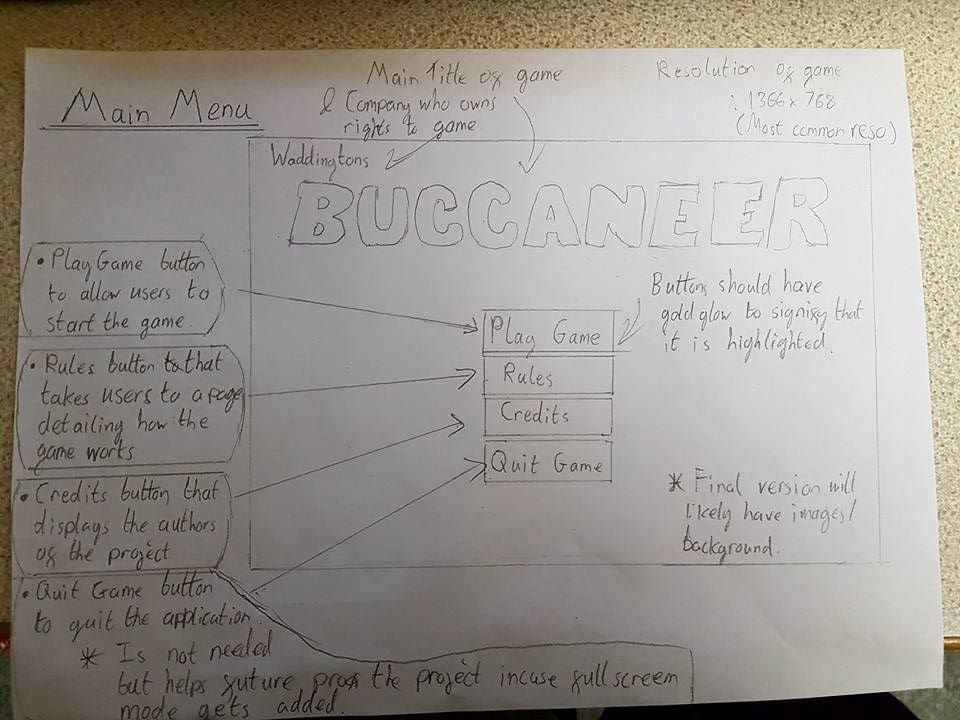 Main Menu
Main Title of game
& Company who owns
rights to game.
Resolution of game
: 1366 x 768
(Most common reso)
Waddingtons
BUCCANEER
• Play Game button
to allow users to
start the game.
• Rules button that
takes users to a page
detailing how the
game works
• Credits button that
displays the authors
of the project
• Quit Game button
to quit the application.
* Is not needed
but helps future proof the project incase full screen
mode gets added.
Play Game
Rules
Credits
Quit Game
Buttons should have
gold glow to signify that
it is highlighted.
* Final version will
likely have images/
background.